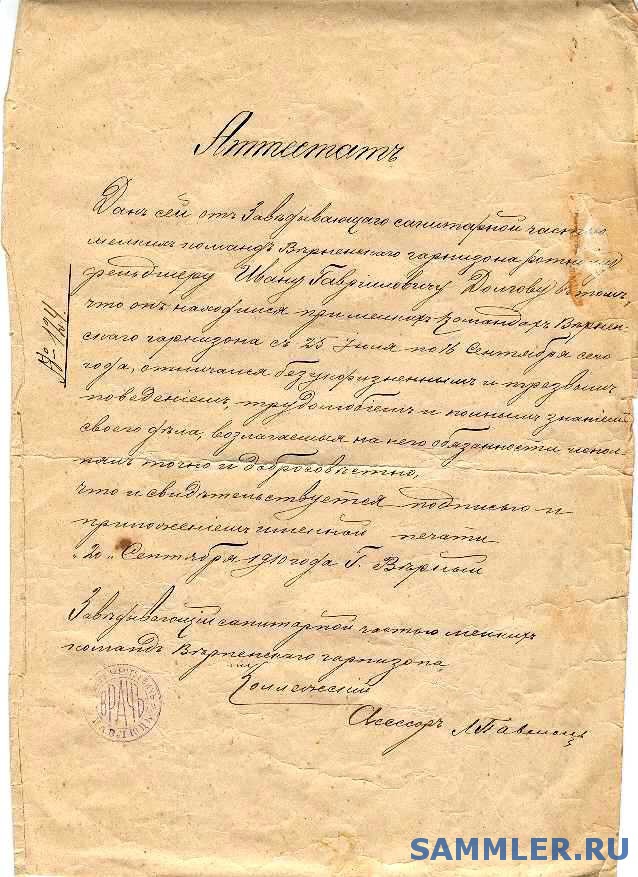 Аттестатъ
Данъ сей отъ Завѣдывающаго санитарной частью
мелкихъ командъ Вѣрненскаго гарнизона ротному
фельдшеру Ивану Гавриловичу Долгову въ томъ,
что онъ находился при мелкихъ Командахъ Вѣрнен-
скаго гарнизона съ 25 Іюля по 16 Сентября сего
№ 194
года, отличался безукоризненнымъ и трезвымъ
поведеніемъ, трудолюбіемъ и полнымъ знаніемъ
своего дѣла, возлагаемыя на него обязанности испол-
нялъ точно и добросовѣстно,
что и свидѣтельствуется подписью и
приложеніемъ именной печати
"20" Сентября 1910 года Г. Вѣрный
Завѣдывающій санитарной частью мелкихъ
командъ Вѣрненскаго гарнизона,
Коллежскій
Ассесоръ
ВРАЧЪ
SAMMLER.RU